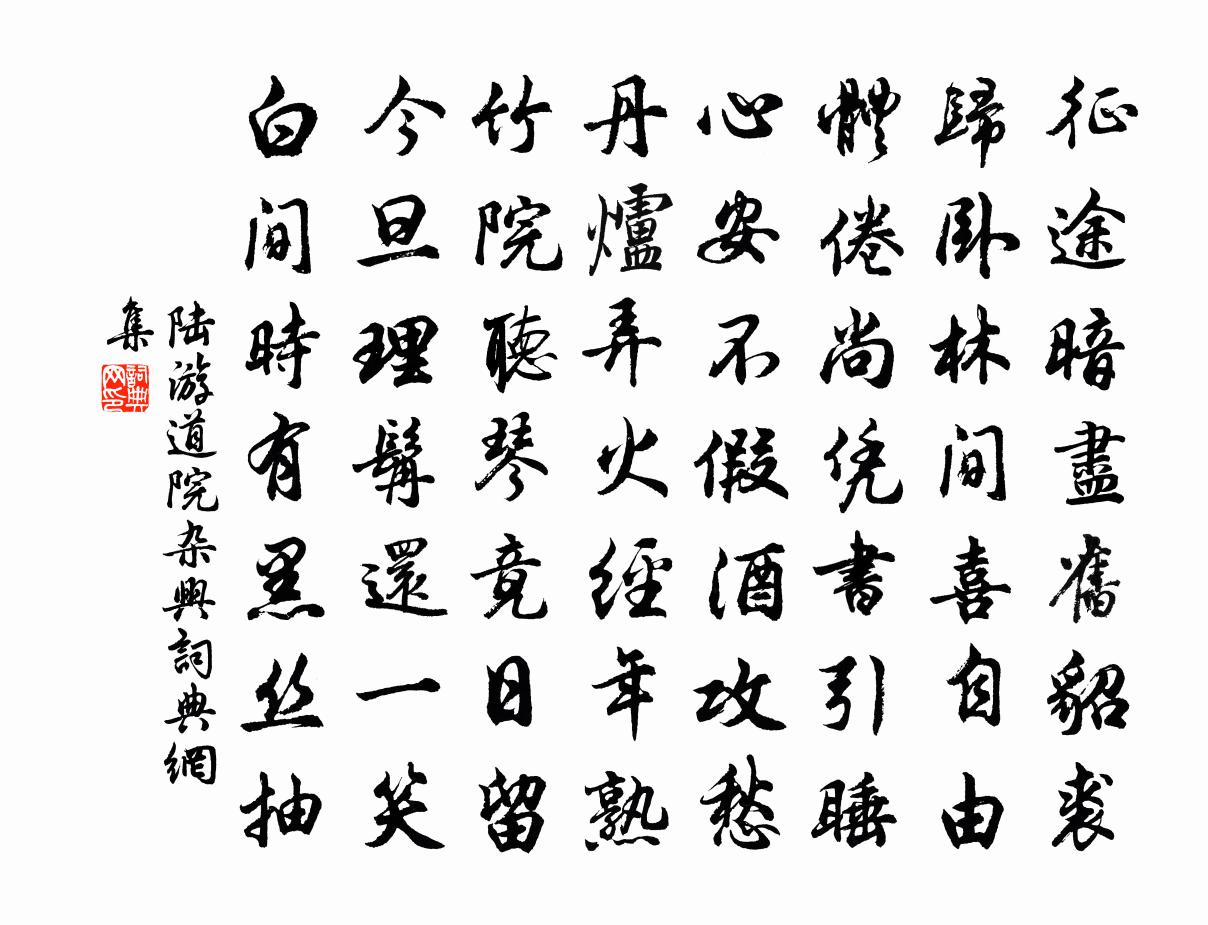 征途暗盡舊貂裘
歸卧林間喜自由
體倦尚凭書引睡
心安不假酒攻愁
丹爐弄火經年熟
竹院聽琴竟日留
今旦理髯還一笑
白間時有黑丝抽
陆游道院杂興詞典網
集
詞典
网印